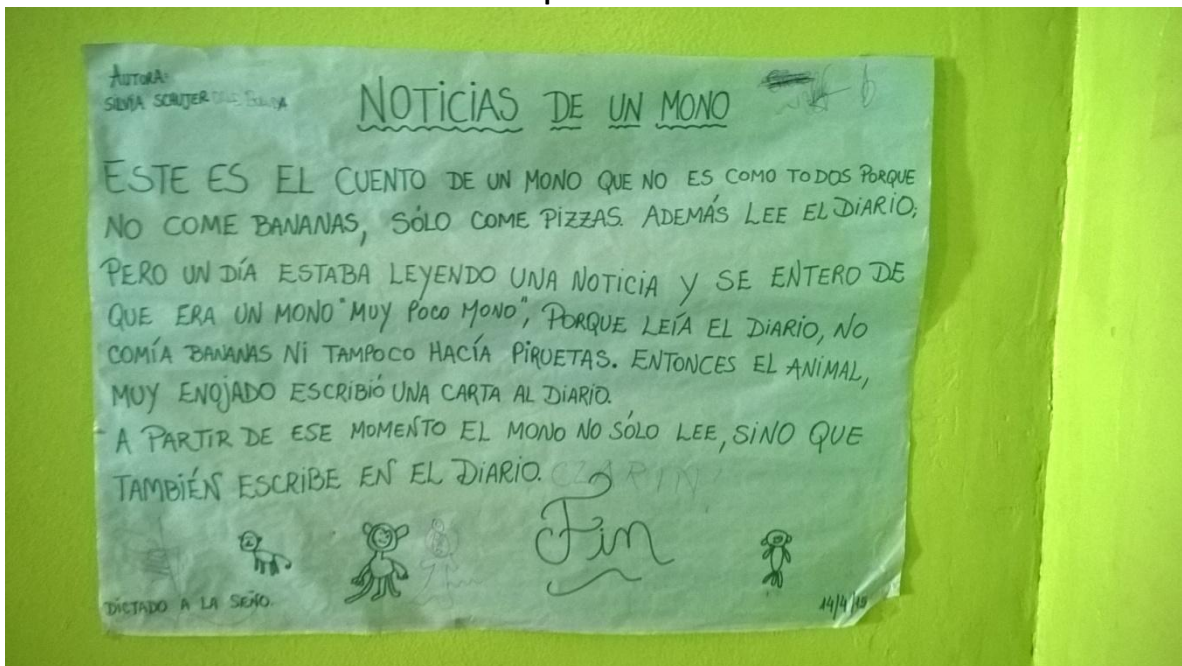 AUTORA:
SILVIA SCHUJER
NOTICIAS DE UN MONO
ESTE ES EL CUENTO DE UN MONO QUE NO ES COMO TODOS PORQUE
NO COME BANANAS, SÓLO COME PIZZAS. ADEMÁS LEE EL DIARIO;
PERO UN DÍA ESTABA LEYENDO UNA NOTICIA Y SE ENTERO DE
QUE ERA UN MONO "MUY POCO MONO", PORQUE LEÍA EL DIARIO, NO
COMÍA BANANAS NI TAMPOCO HACÍA PIRUETAS. ENTONCES EL ANIMAL,
MUY ENOJADO ESCRIBIÓ UNA CARTA AL DIARIO.
A PARTIR DE ESE MOMENTO EL MONO NO SÓLO LEE, SINO QUE
TAMBIÉN ESCRIBE EN EL DIARIO.
Fin
DICTADO A LA SEÑO.